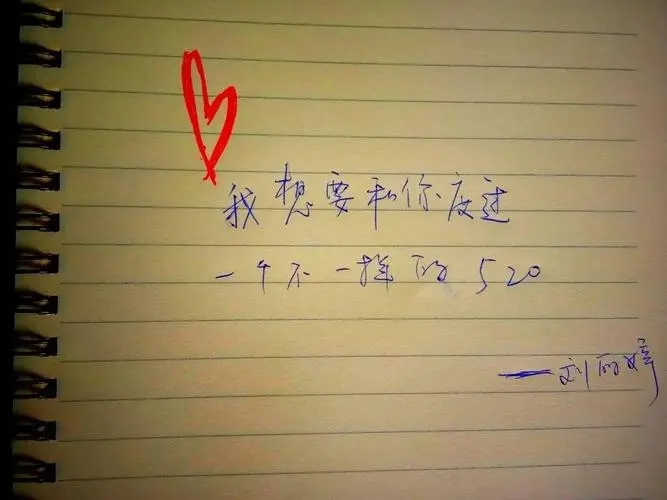 我想要和你度过
一个不一样的520
——刘